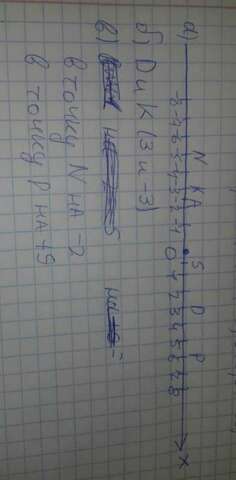 а)
N K A S D P
-8 -7 -6 -5 -4 -3 -2 -1 0 1 2 3 4 5 6 7 8 x
б) D и K (3 и -3)
в)
в точку N на -2
в точку P на +5